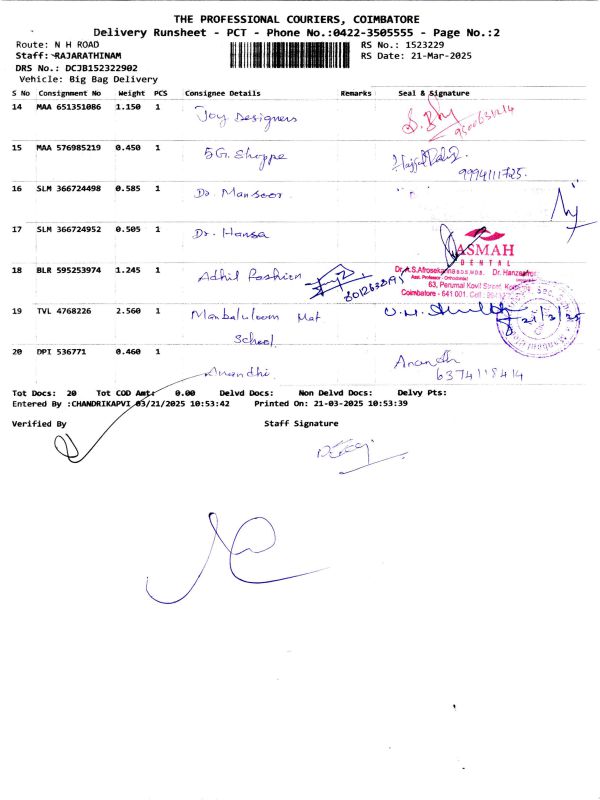 THE PROFESSIONAL COURIERS, COIMBATORE
Delivery Runsheet - PCT - Phone No.:0422-3505555 - Page No.:2
Route: N H ROAD RS No.: 1523229
Staff: RAJARATHINAM RS Date: 21-Mar-2025
DRS No.: DCJB152322902
Vehicle: Big Bag Delivery
S No Consignment No Weight PCS Consignee Details Remarks Seal & Signature
14 MAA 651351086 1.150 1 Joy Designers
15 MAA 576985219 0.450 1 5G. Shoppe
9994111725.
16 SLM 366724498 0.585 1 Dr. Mansoor
17 SLM 366724952 0.505 1 Dr. Hansa
ASMAH
DENTAL
18 BLR 595253974 1.245 1 Adhil Fashion
Dr. A.S.Afrose
Asst. Professor - Orthodontist
63, Perumal Kovil Street,
Coimbatore - 641 001. Cell :
19 TVL 4768226 2.560 1 Manbaluloom Mat
School. 21/3/25
20 DPI 536771 0.460 1 Anandhi Anandh
6374118414
Tot Docs: 20 Tot COD Amt: 0.00 Delvd Docs: Non Delvd Docs: Delvy Pts:
Entered By :CHANDRIKAPVI 03/21/2025 10:53:42 Printed On: 21-03-2025 10:53:39
Verified By Staff Signature